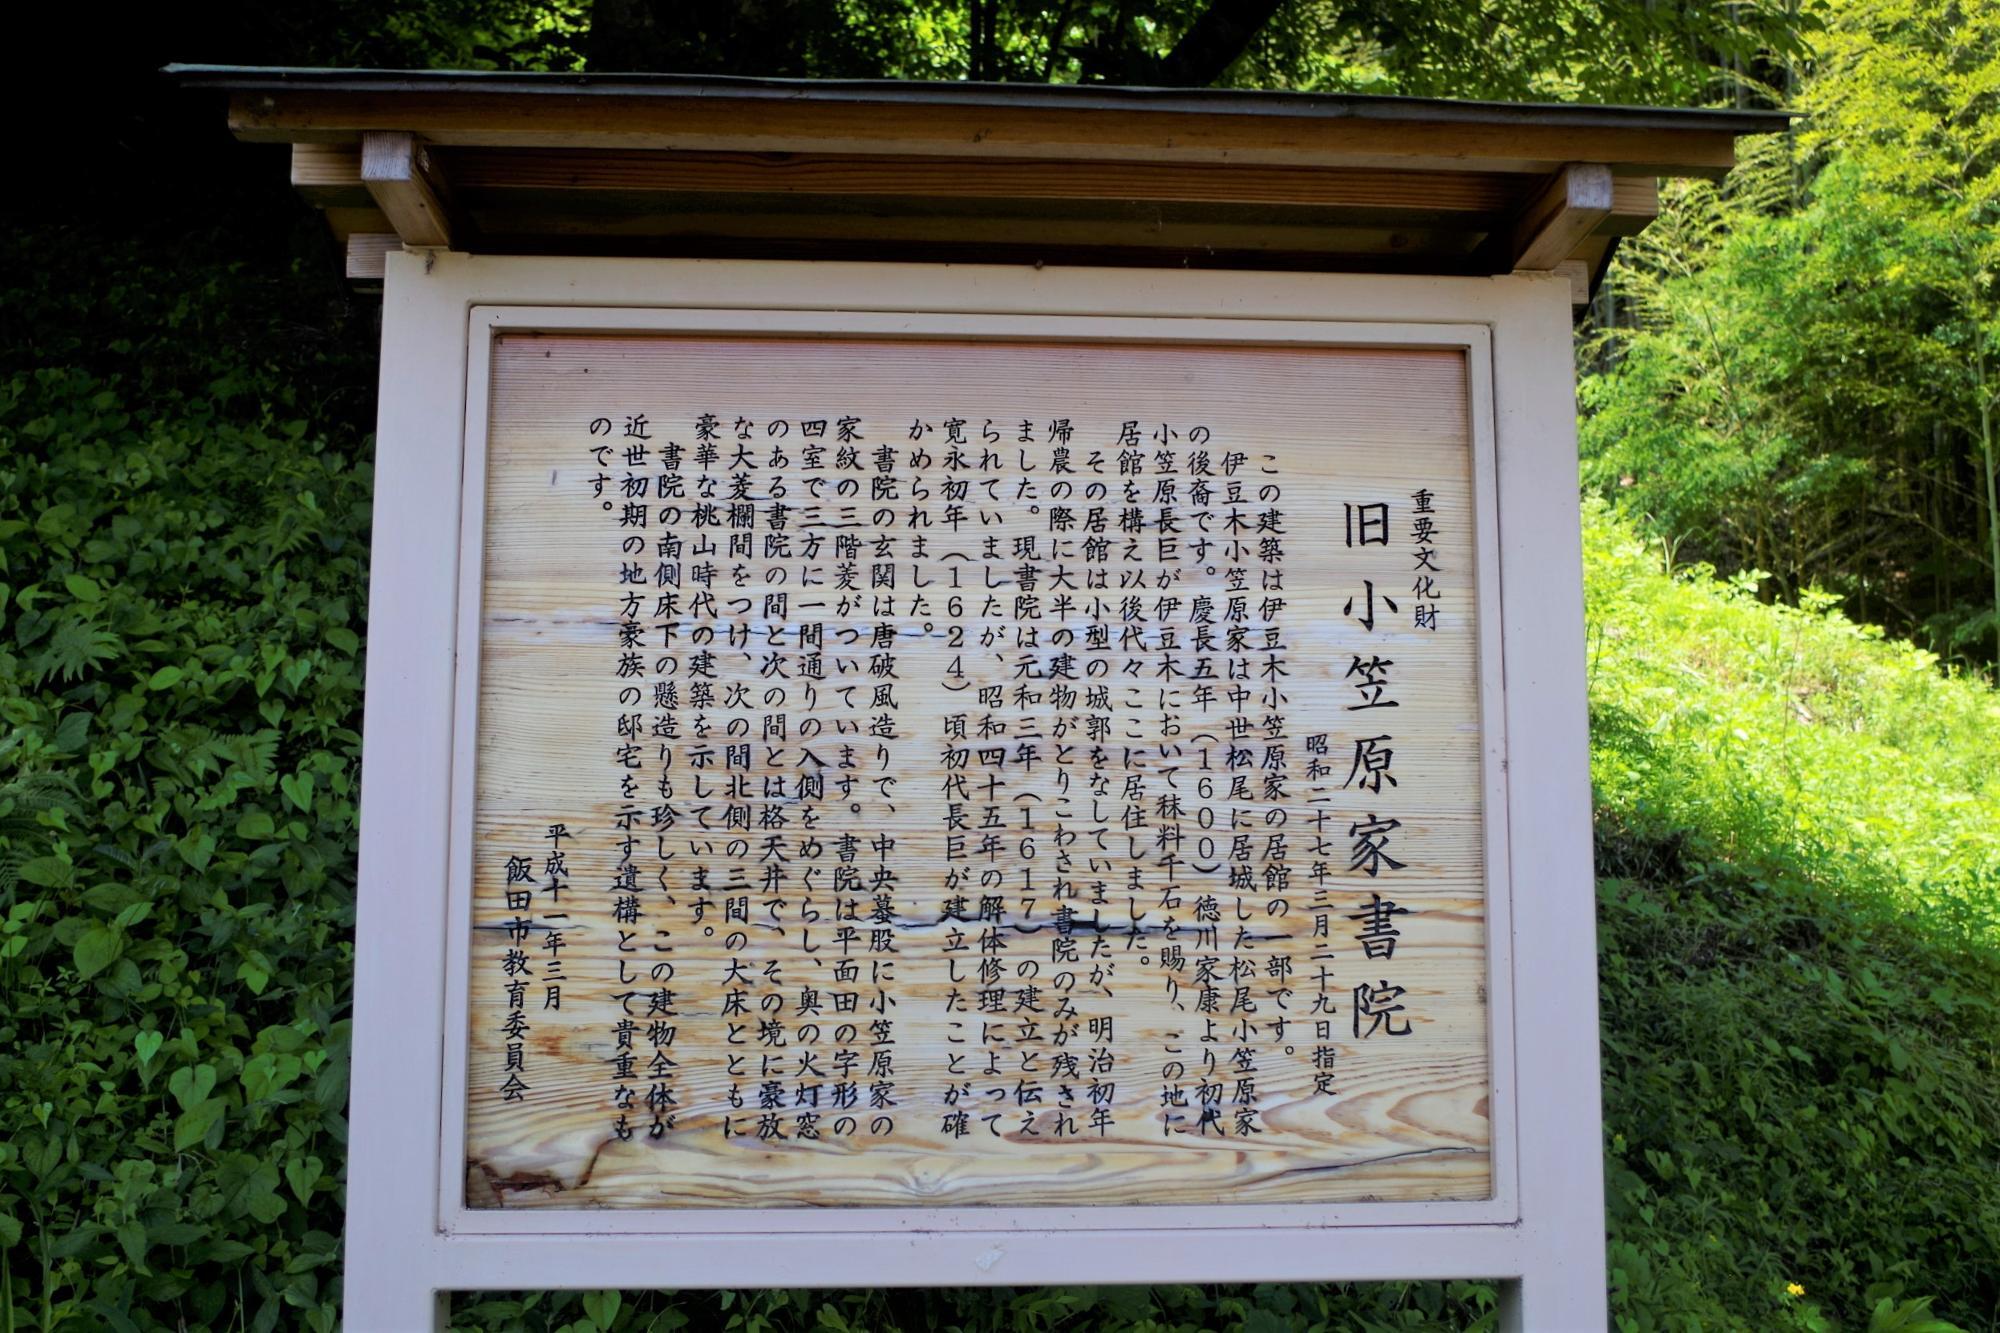 重要文化財
旧小笠原家書院
昭和二十七年三月二十九日指定
この建築は伊豆木小笠原家の居館の一部です。
伊豆木小笠原家は中世松尾に居城した松尾小笠原家
の後裔です。慶長五年（1600）徳川家康より初代
小笠原長巨が伊豆木において秣料千石を賜り、この地に
居館を構え以後代々ここに居住しました。
その居館は小型の城郭をなしていましたが、明治初年
帰農の際に大半の建物がとりこわされ書院のみが残され
ました。現書院は元和三年（1617）の建立と伝え
られていましたが、昭和四十五年の解体修理によって
寛永初年（1624）頃初代長巨が建立したことが確
かめられました。
書院の玄関は唐破風造りで、中央蟇股に小笠原家の
家紋の三階菱がついています。書院は平面田の字形の
四室で三方に一間通りの入側をめぐらし、奥の火灯窓
のある書院の間と次の間とは格天井で、その境に豪放
な大菱欄間をつけ、次の間北側の三間の大床とともに
豪華な桃山時代の建築を示しています。
書院の南側床下の懸造りも珍しく、この建物全体が
近世初期の地方豪族の邸宅を示す遺構として貴重なも
のです。
平成十一年三月
飯田市教育委員会